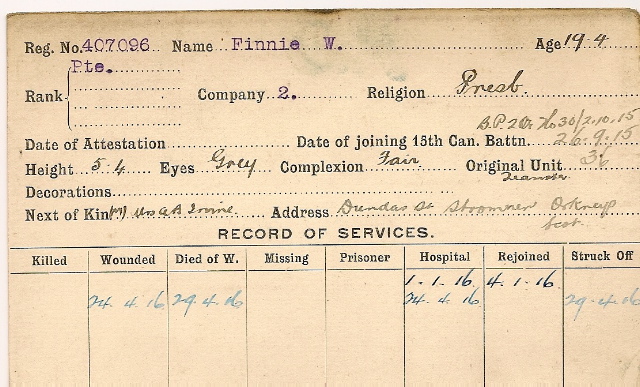 Reg. No. 407096 Name Finnie W. Age 19-4
Pte.
Rank Company 2. Religion Presb.
B.P. 2 Or. No 30/2.10.15
Date of Attestation Date of joining 15th Can. Battn. 26.9.15
Height 5-4 Eyes Grey Complexion Fair Original Unit 36
Decorations
Next of Kin (M) Mrs A B Irvine Address Dundas St Stromness Orkneys
Scot.
RECORD OF SERVICES.
Killed Wounded Died of W. Missing Prisoner Hospital Rejoined Struck Off
1.1.16. 4.1.16
24.4.16 29.4.16 24.4.16 29.4.16